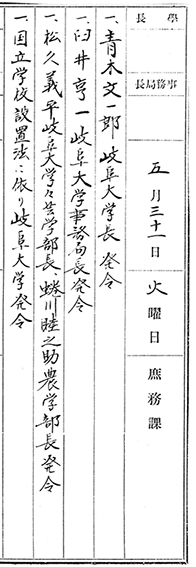 學長
事務局長
五月三十一日 火曜日 庶務課
一、青木文一郎 岐阜大学長 発令
一、臼井亨一 岐阜大学事務局長発令
一、松久義平岐阜大学々芸学部長 蜷川睦之助農学部長発令
一、国立学校設置法ニ依リ岐阜大学発令